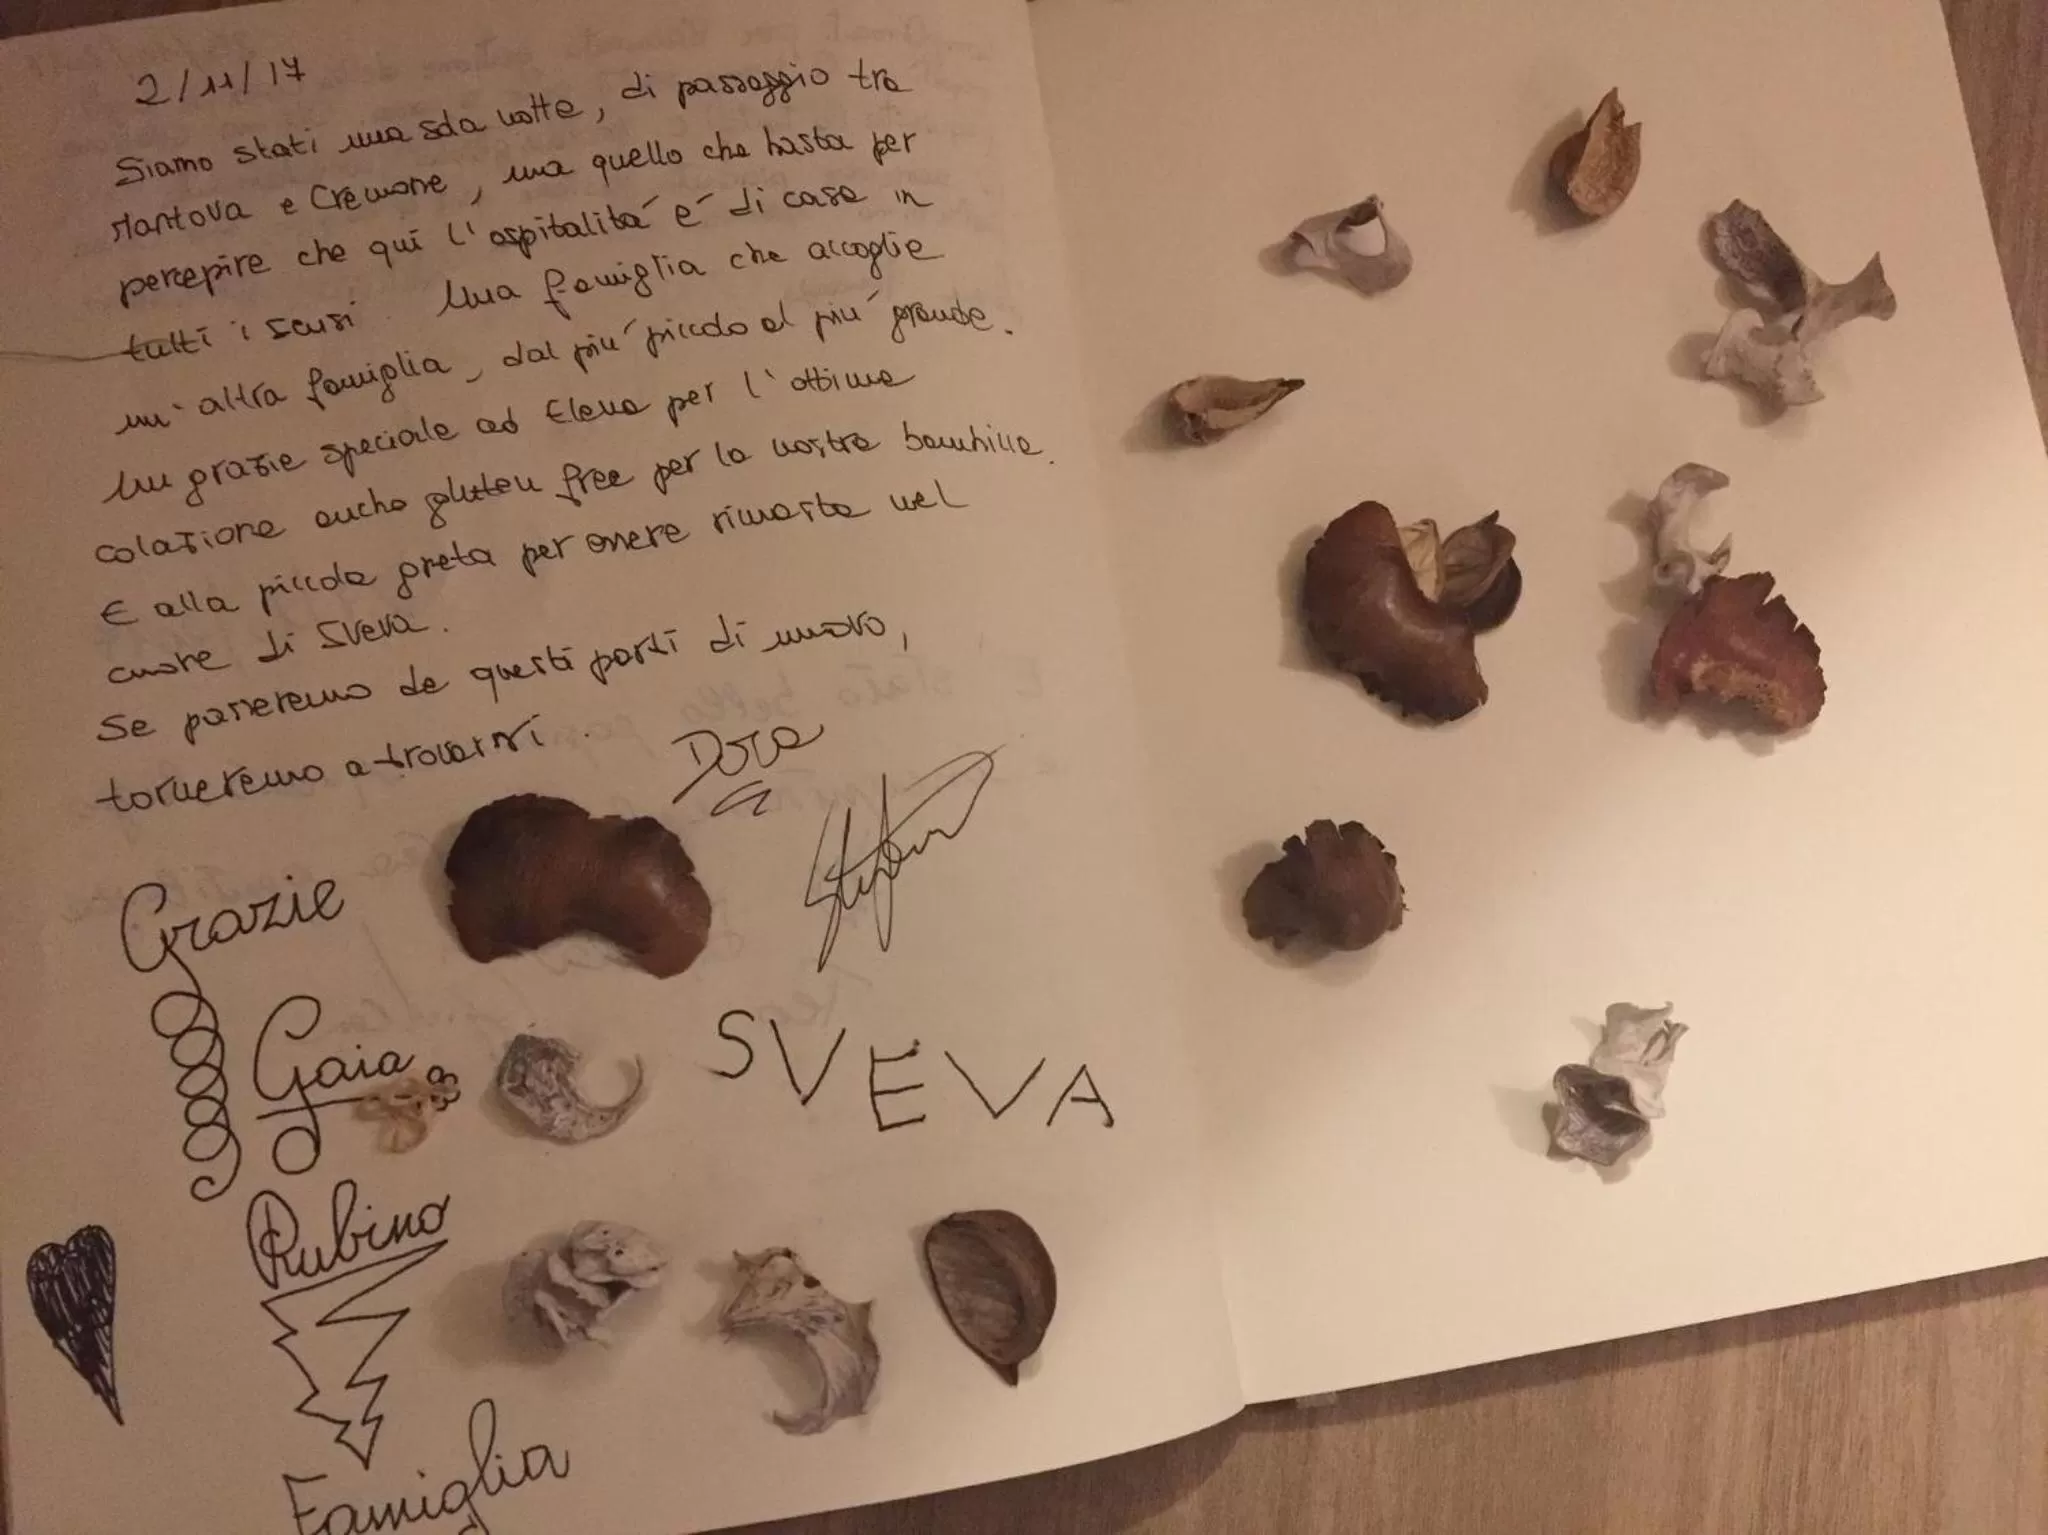 2/11/17
Siamo stati una sola notte, di passaggio tra
Mantova e Cremona, ma quello che basta per
percepire che qui l'ospitalitá é di casa in
tutti i sensi. Una famiglia che accoglie
un'altra famiglia, dal piú piccolo al piú grande.
Un grazie speciale ad Elena per l'ottima
colazione anche gluten free per la nostra bambina.
E alla piccola greta per essere rimasta nel
cuore di Sveva.
Se passeremo da questi posti di nuovo,
torneremo a trovarvi.
Dora
Stefano
Grazie
Gaia
SVEVA
Rubino
Famiglia